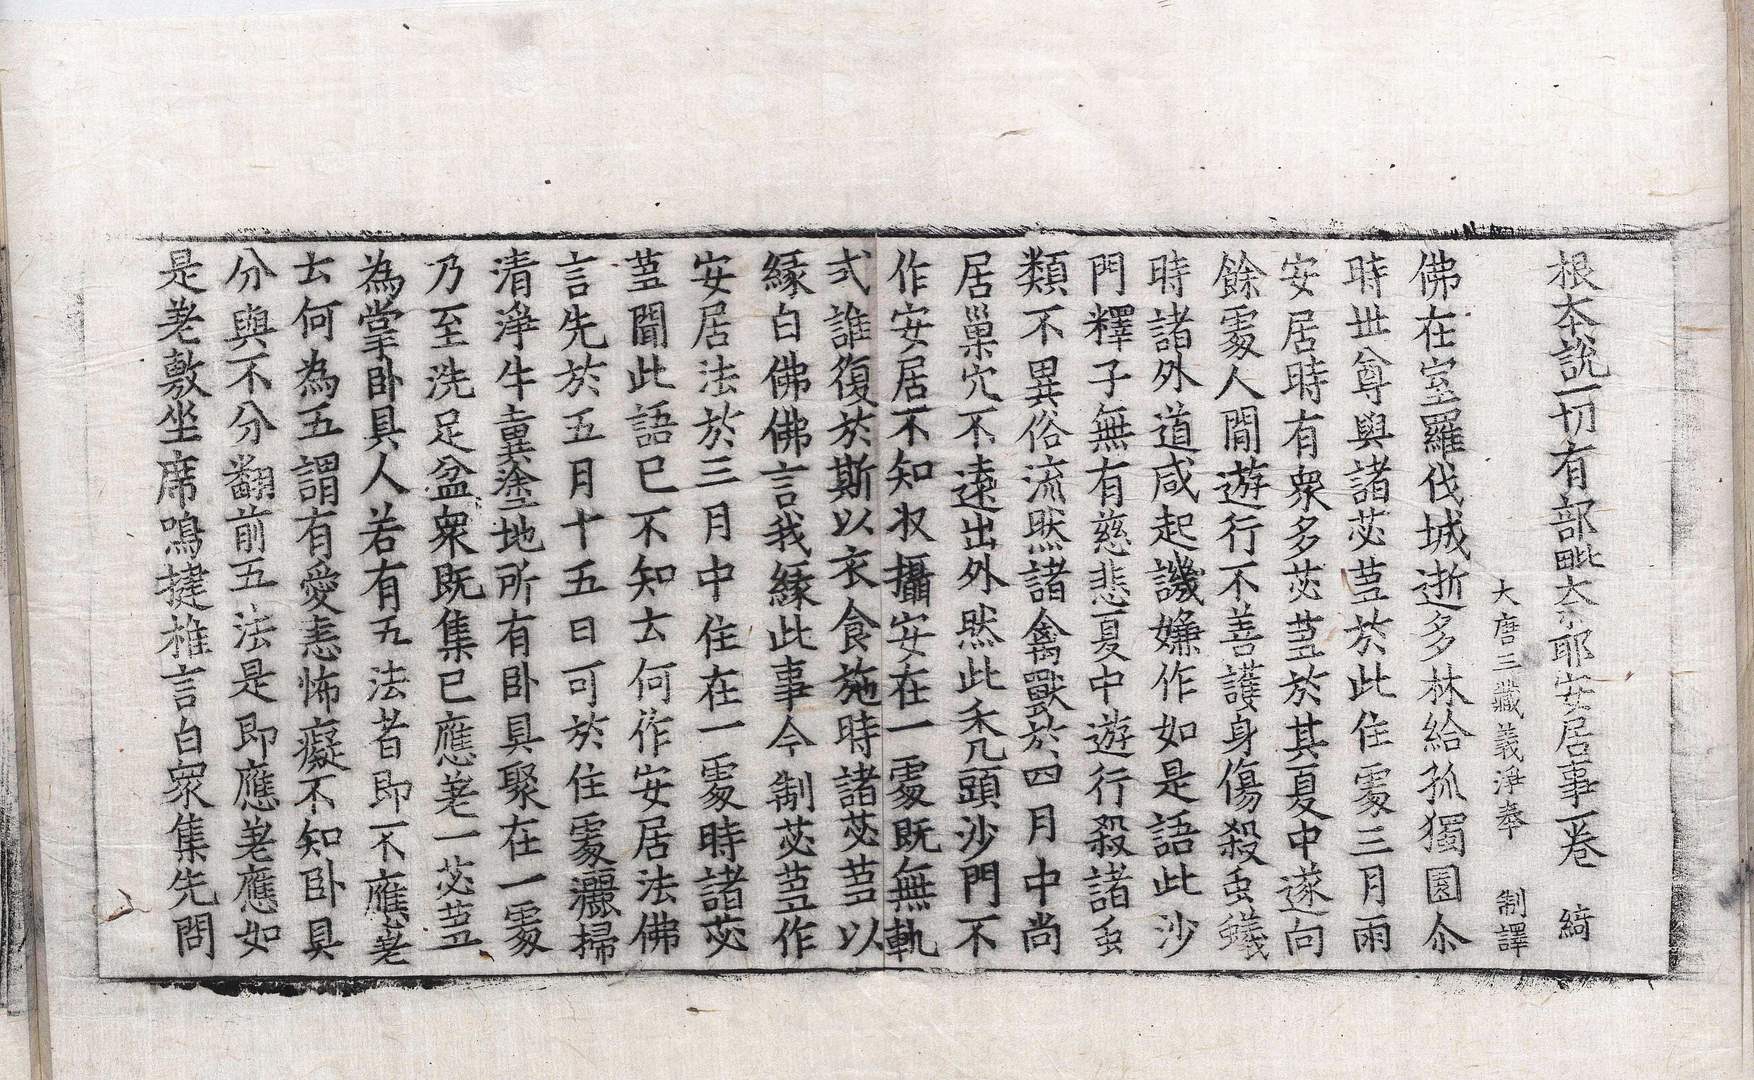 根本說一切有部毗柰耶安居事一卷 綺
大唐三藏義淨奉 制譯
佛在室羅伐城逝多林給孤獨園尒
時世尊與諸苾芻於此住處三月雨
安居時有衆多苾芻於其夏中遂向
餘處人閒遊行不善護身傷殺虫蟻
時諸外道咸起譏嫌作如是語此沙
門釋子無有慈悲夏中遊行殺諸虫
類不異俗流然諸禽獸於四月中尚
居巢穴不遠出外然此禿几頭沙門不
作安居不知收攝安在一處既無軌
式誰復於斯以衣食施時諸苾芻以
緣白佛佛言我緣此事今制苾芻作
安居法於三月中住在一處時諸苾
芻聞此語已不知云何作安居法佛
言先於五月十五日可於住處灑掃
清淨牛糞塗地所有卧具聚在一處
乃至洗足盆衆既集已應差一苾芻
為掌卧具人若有五法者即不應差
云何為五謂有愛恚怖癡不知卧具
分與不分翻前五法是即應差應如
是差敷坐席鳴揵椎言白衆集先問